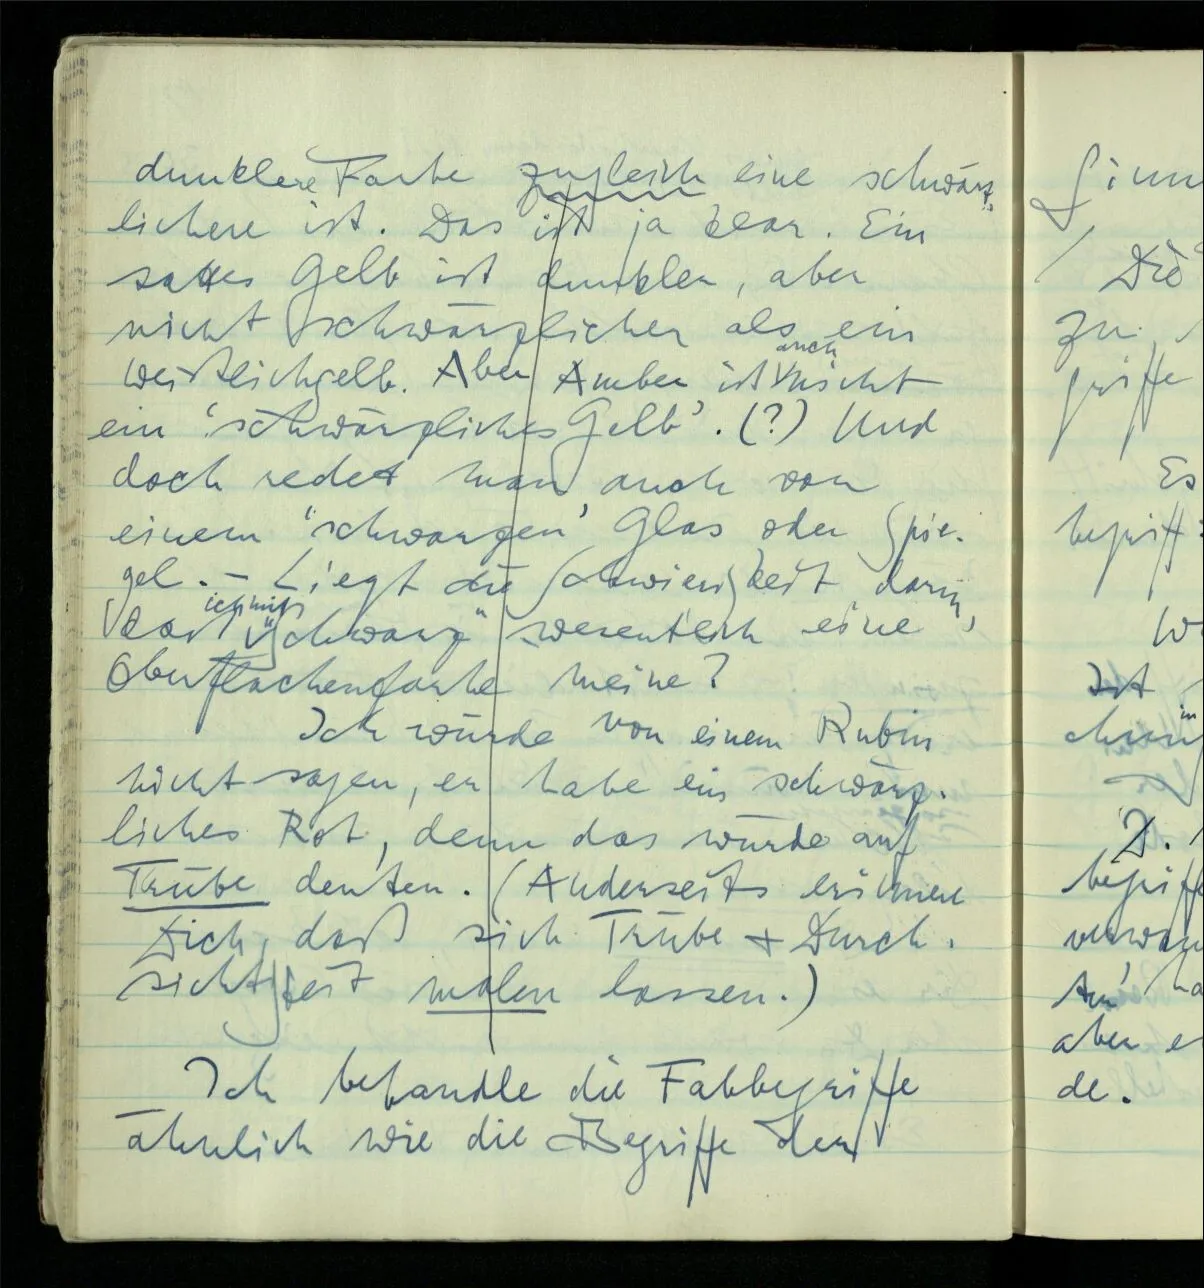 dunklere Farbe zugleich eine schwärz-
lichere ist. Das ist ja klar. Ein
sattes Gelb ist dunkler, aber
nicht schwärzlicher als ein
weißlichgelb. Aber Amber ist auch nicht
ein 'schwärzliches Gelb'. (?) Und
doch redet man auch von
einem 'schwarzen' Glas oder Spie-
gel. – Liegt die Schwierigkeit darin,
daß ich mit "Schwarz" wesentlich eine
Oberflächenfarbe meine?
Ich würde von einem Rubin
nicht sagen, er habe ein schwärz-
liches Rot, denn das würde auf
Trübe deuten. (Anderseits erinnere
Dich, daß sich Trübe + Durch-
sichtigkeit malen lassen.)
Ich behandle die Fabbegriffe
ähnlich wie die Begriffe der
Sinn
/ Die
zu
griffe
Es
begriff
W
Ist
in
Z.
begriff
aber
de.